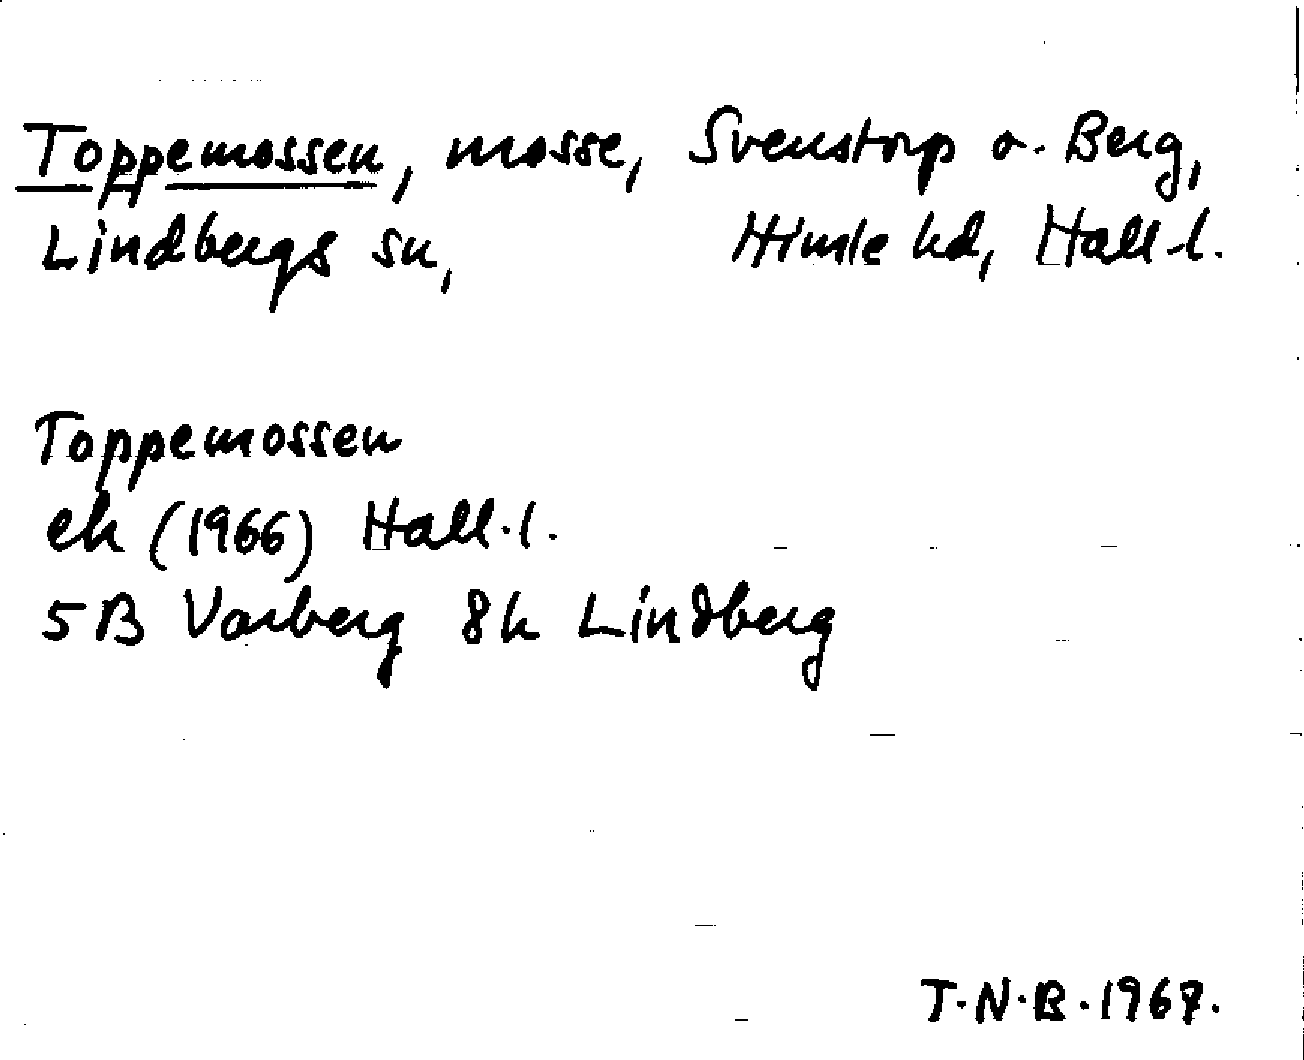 Toppemossen, mosse, Svenstorp o. Berg,
Lindbergs sn, Himle hd, Hall.l.
Toppemossen
ek (1966) Hall.l.
5B Varberg 8h Lindberg
T.N.B. 1967.